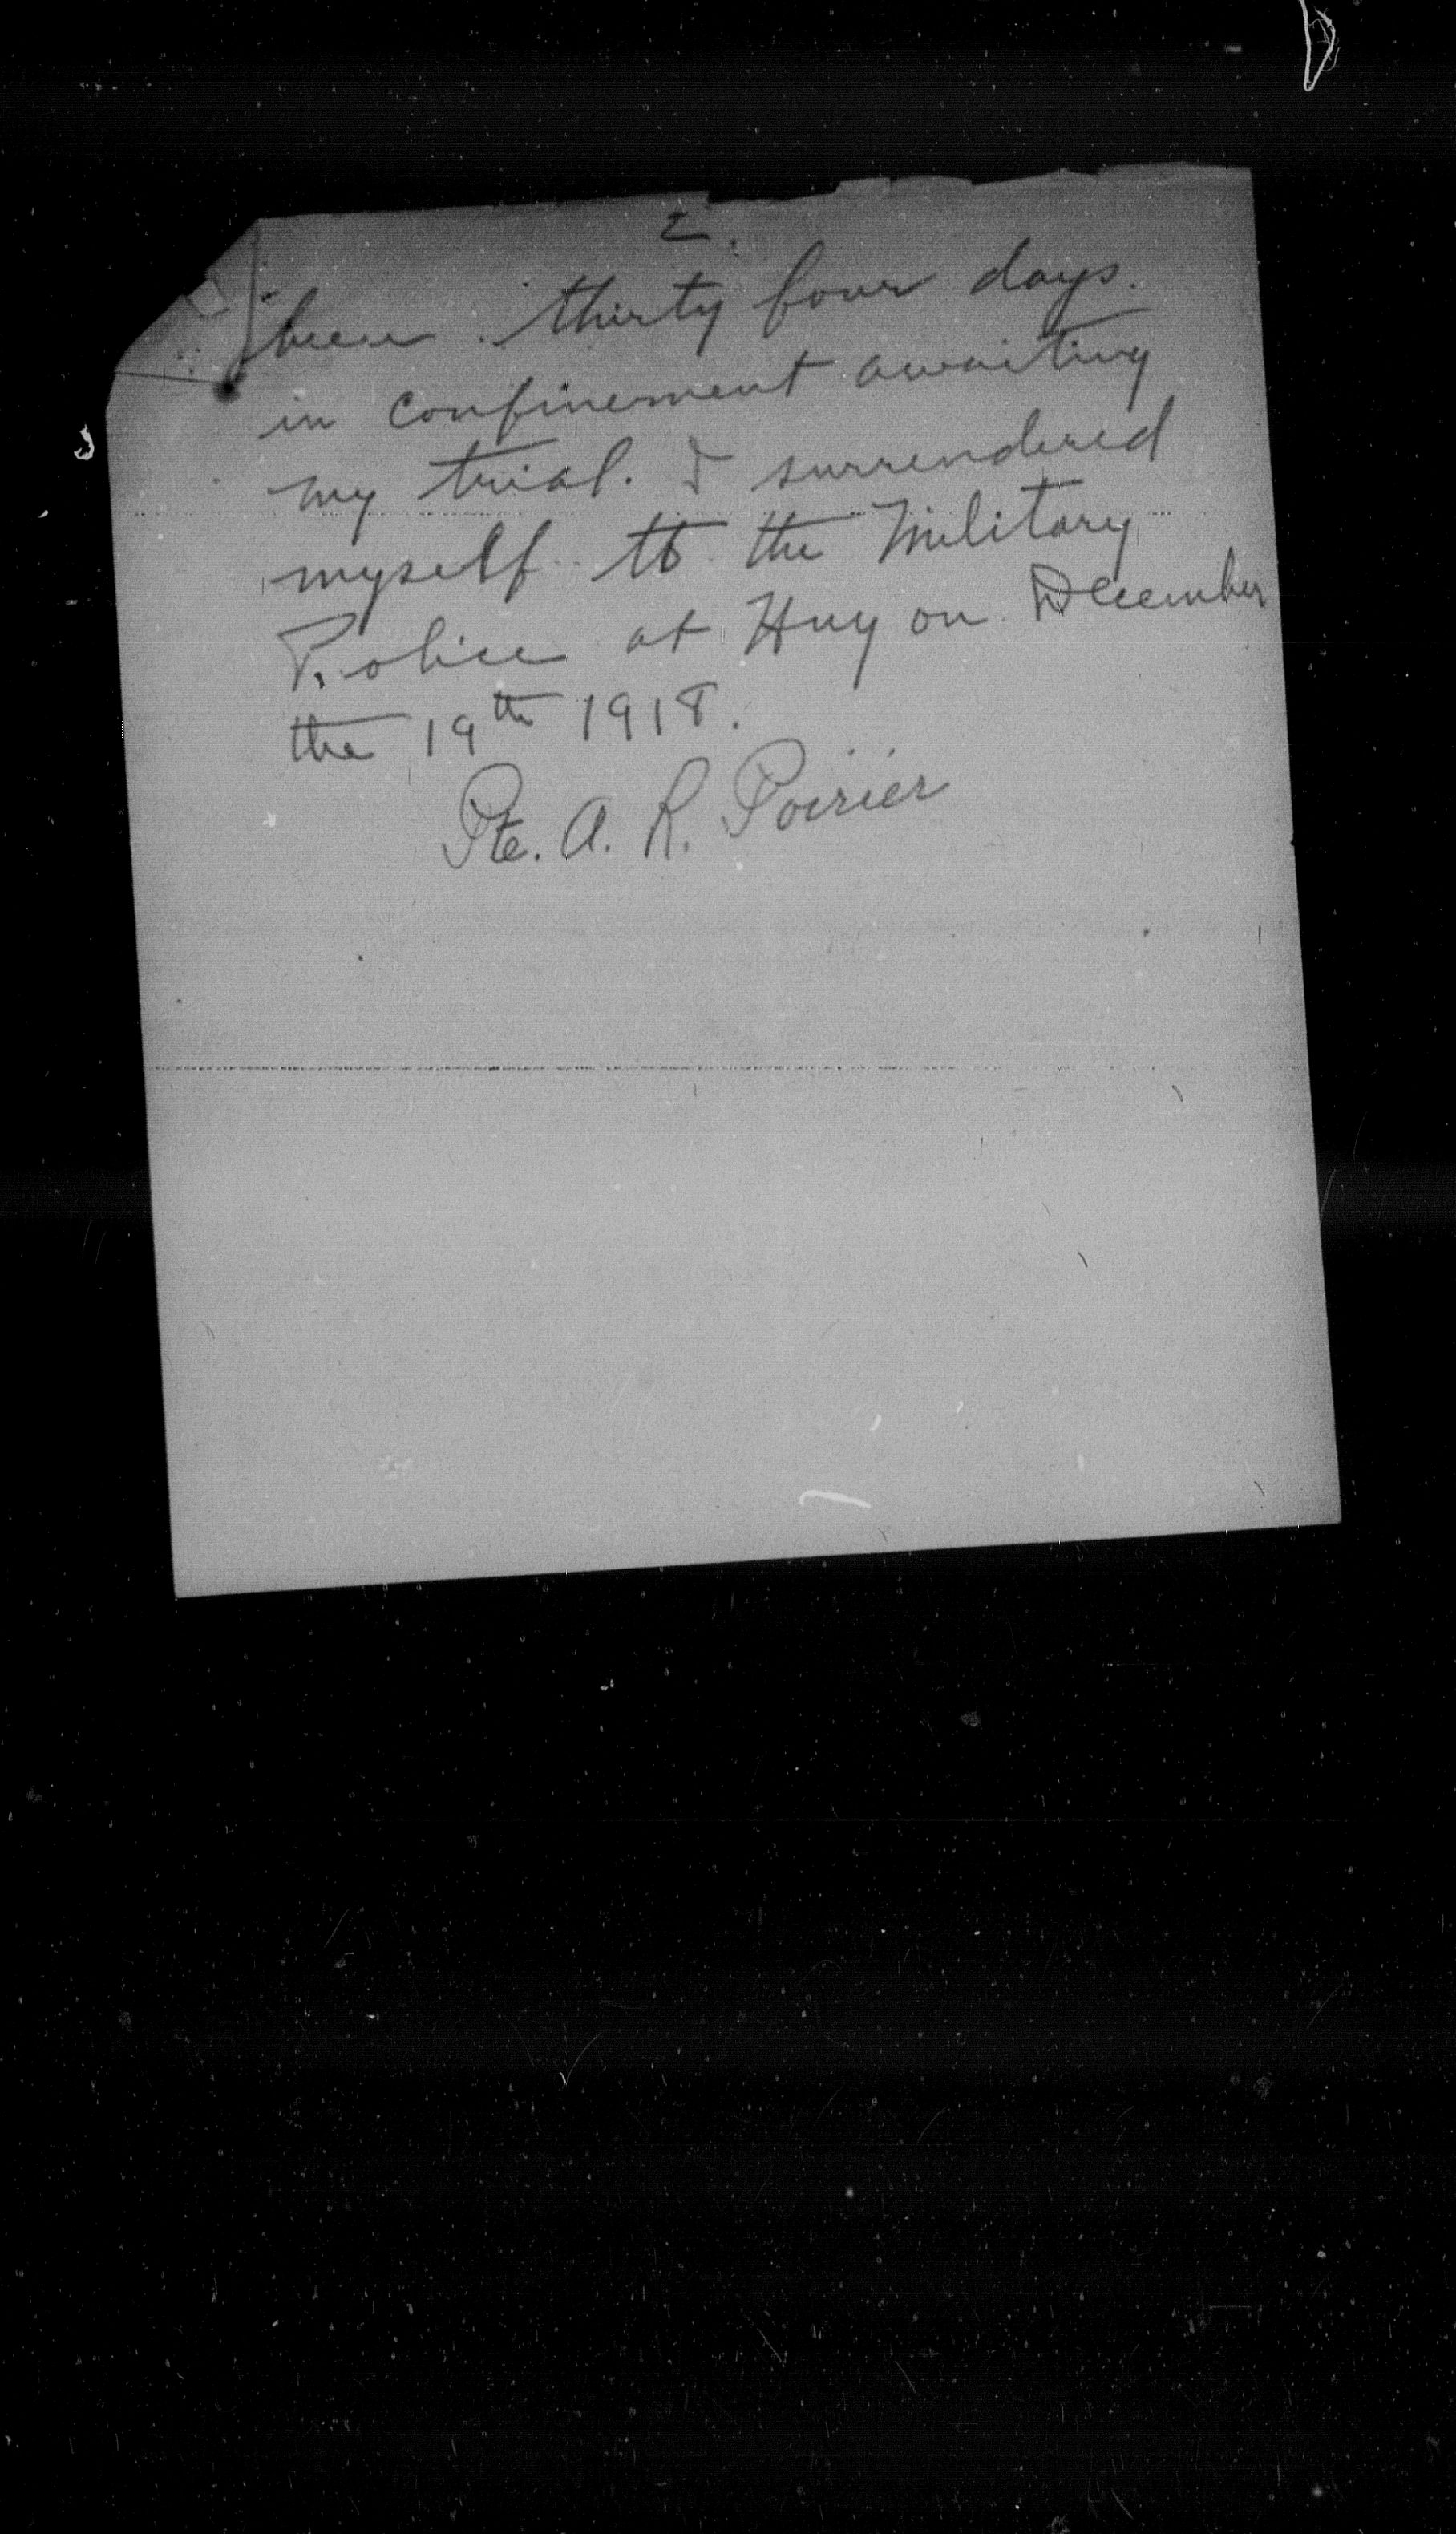 2.
been thirty four days
in confinement awaiting
my trial. I surrendered
myself to the Military
Police at Huy on December
the 19th 1918.
Pte. A. R. Poirier